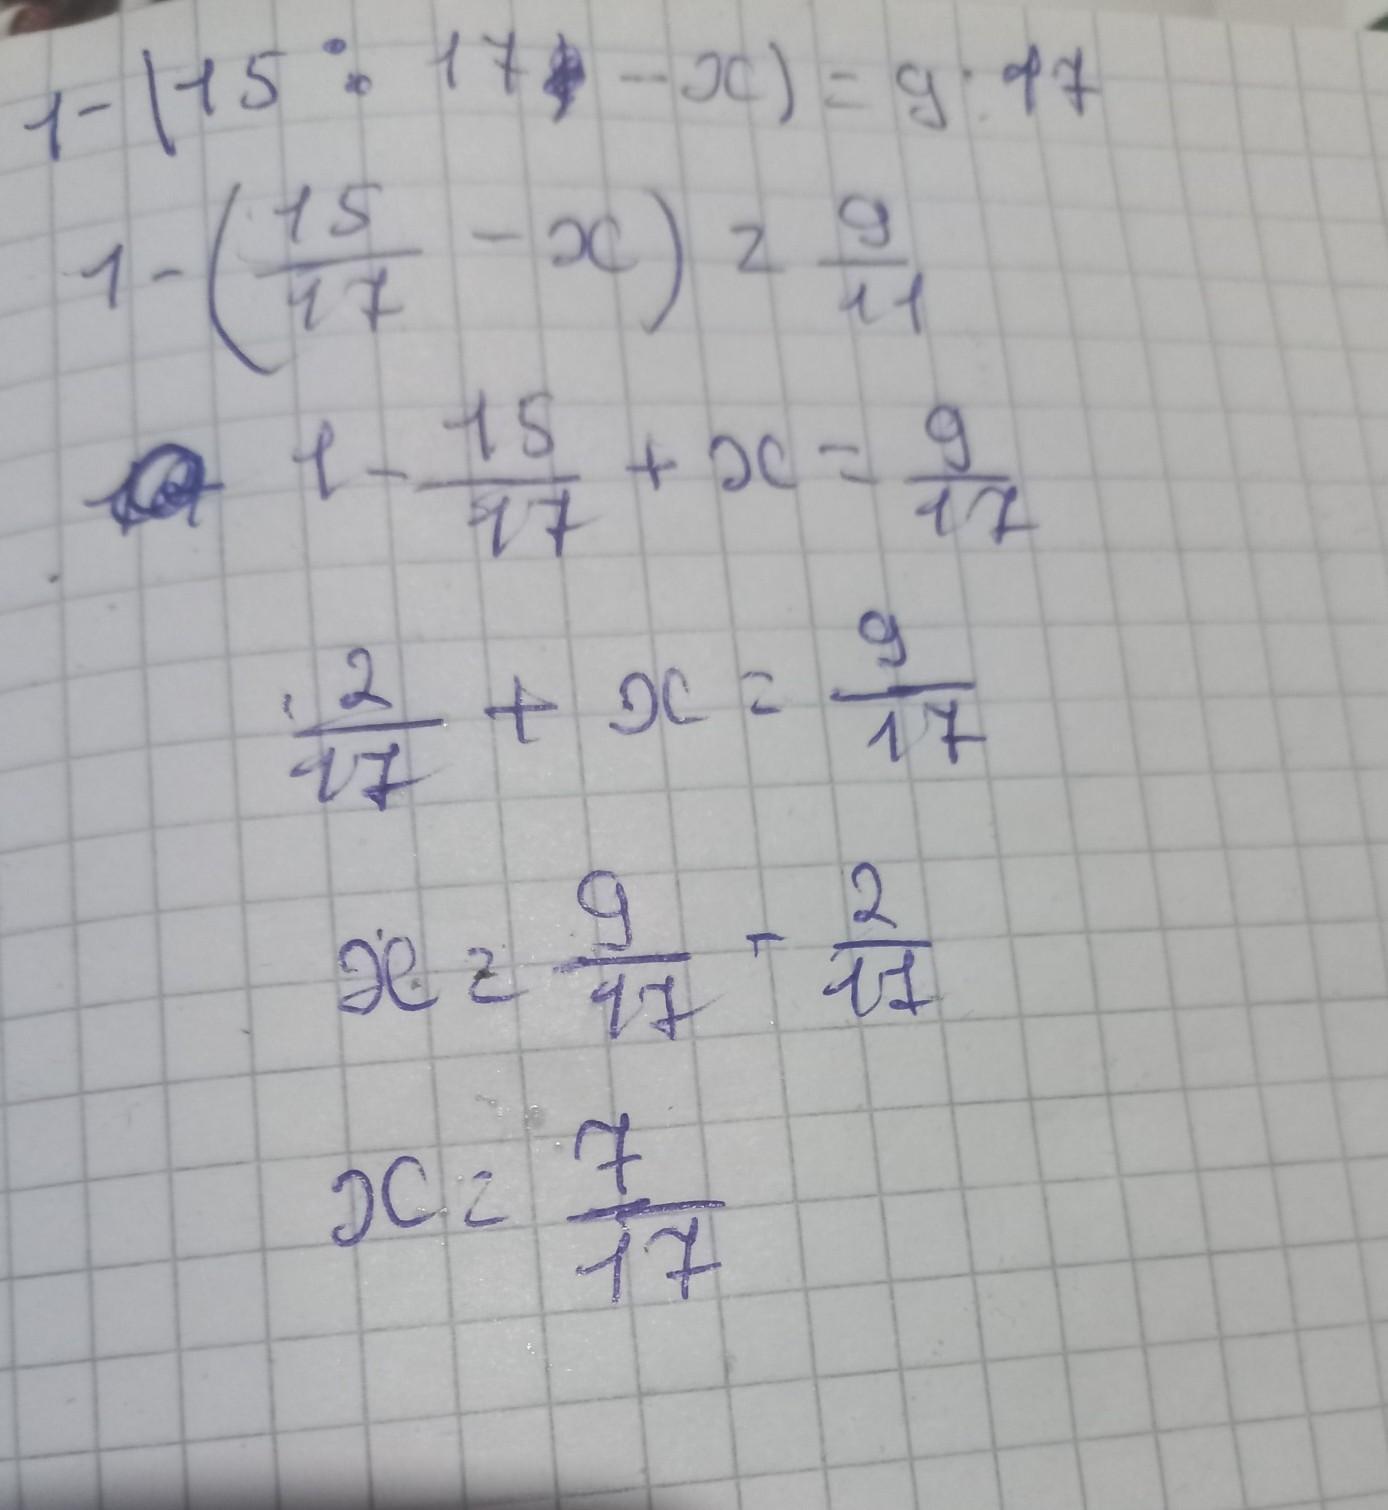 1 - (15 : 17 - x) = 9 : 17
1 - (15/17 - x) = 9/11
1 - 15/17 + x = 9/17
2/17 + x = 9/17
x = 9/17 - 2/17
x = 7/17